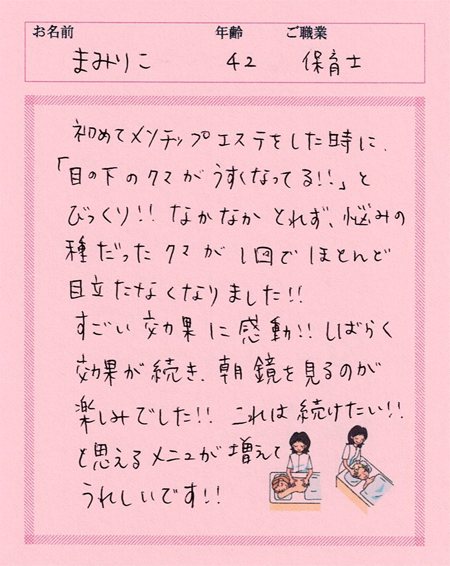 お名前 年齢 ご職業
まみりこ 42 保育士
初めてメンチップエステをした時に、
「目の下のクマがうすくなってる!!」と
びっくり!! なかなかとれず、悩みの
種だったクマが1回でほとんど
目立たなくなりました!!
すごい効果に感動!! しばらく
効果が続き、朝鏡を見るのが
楽しみでした!! これは続けたい!!
と思えるメニュが増えて
うれしいです!!